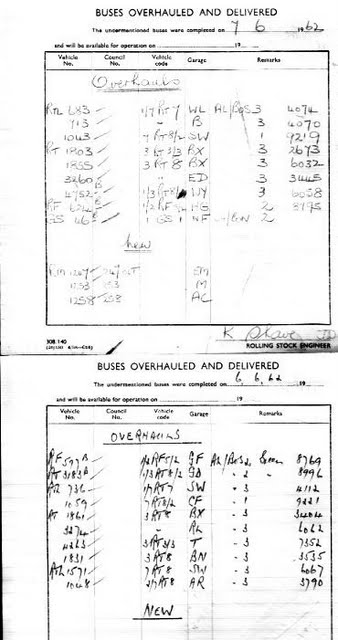 BUSES OVERHAULED AND DELIVERED
The undermentioned buses were completed on 7 6 1962
and will be available for operation on 19
Vehicle No. Council No. Vehicle code Garage Remarks
Overhauls
RTL 683 1/7 RT7 WL AL/BoS 3 4074
713 " B 3 4070
1043 7 RT8/2 SW 1 9219
RT 1803 3 RT3/3 BX 3 2673
1855 3 RT8 BX 3 6032
3260 ED 3 3445
4752 1/3 RT8/ NY 3 6058
RF 624 B 1/2 RF HG 2 8795
GS 46 B 1 GS1 NF 2
New
RM 1247 247 CLT EM
1253 253 M
1258 258 AC
K
308.140
ROLLING STOCK ENGINEER
BUSES OVERHAULED AND DELIVERED
The undermentioned buses were completed on 6.6.62 19
and will be available for operation on 19
Vehicle No. Council No. Vehicle code Garage Remarks
OVERHAULS
RF 597 B 1/2 RF5/2 GF AL/BoS 2 Green 8769
RT 3183 B 1/3 RT8/2 GD 2 8996
RTL 736 1/7 RT7 SW 3 4112
1059 7 RT8/2 CF 1 9221
RT 1861 3 RT8 BX 3 3404
3274 AL 3 6062
4263 3 RT3/3 T 3 7352
1831 3 RT8 BN 3 3535
RTL 1571 7 RT8 SW 3 6067
1048 2/7 RT8 AR 3 3790
NEW